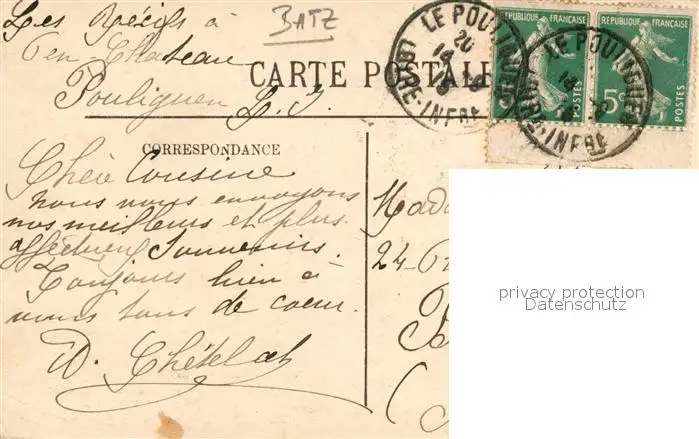 Les Récifs à
Pen Chateau
Pouliguen L. I.
BATZ
CARTE POSTALE
LE POULIGUEN
20
LOIRE-INFRE
REPUBLIQUE FRANÇAISE
POSTES
LE POULIGUEN
LOIRE-INFRE
REPUBLIQUE FRANÇAISE
5c
POSTES
CORRESPONDANCE
Chère Cousine
nous vous envoyons
nos meilleurs et plus
affectueux Souvenirs.
Toujours bien à
vous tous de coeur.
D. Chételat
Mad
24
B
(
privacy protection
Datenschutz